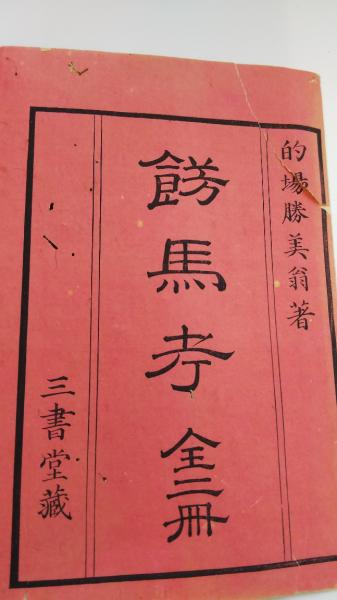 的場勝美翁著
餝馬考 全二冊
三書堂藏